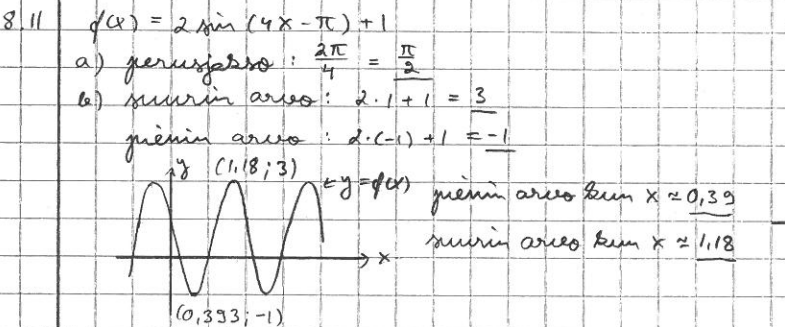 8.11 f(x) = 2 sin (4x - π) + 1
a) perusjakso : 2π/4 = π/2
b) suurin arvo : 2·1 + 1 = 3
pienin arvo : 2·(-1) + 1 = -1
y (1,18 ; 3)
← y = f(x)
pienin arvo kun x ≈ 0,39
suurin arvo kun x ≈ 1,18
x
(0,393 ; -1)